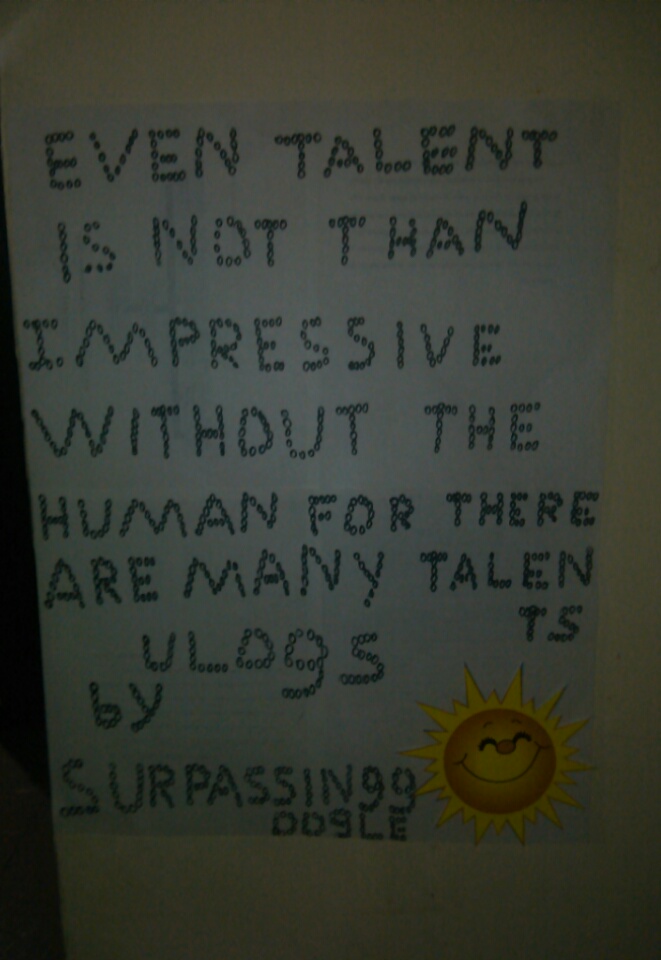 EVEN TALENT
IS NOT THAN
IMPRESSIVE
WITHOUT THE
HUMAN FOR THERE
ARE MANY TALEN
TS
ULOgS
by
SURPASSINgg
OOgLE